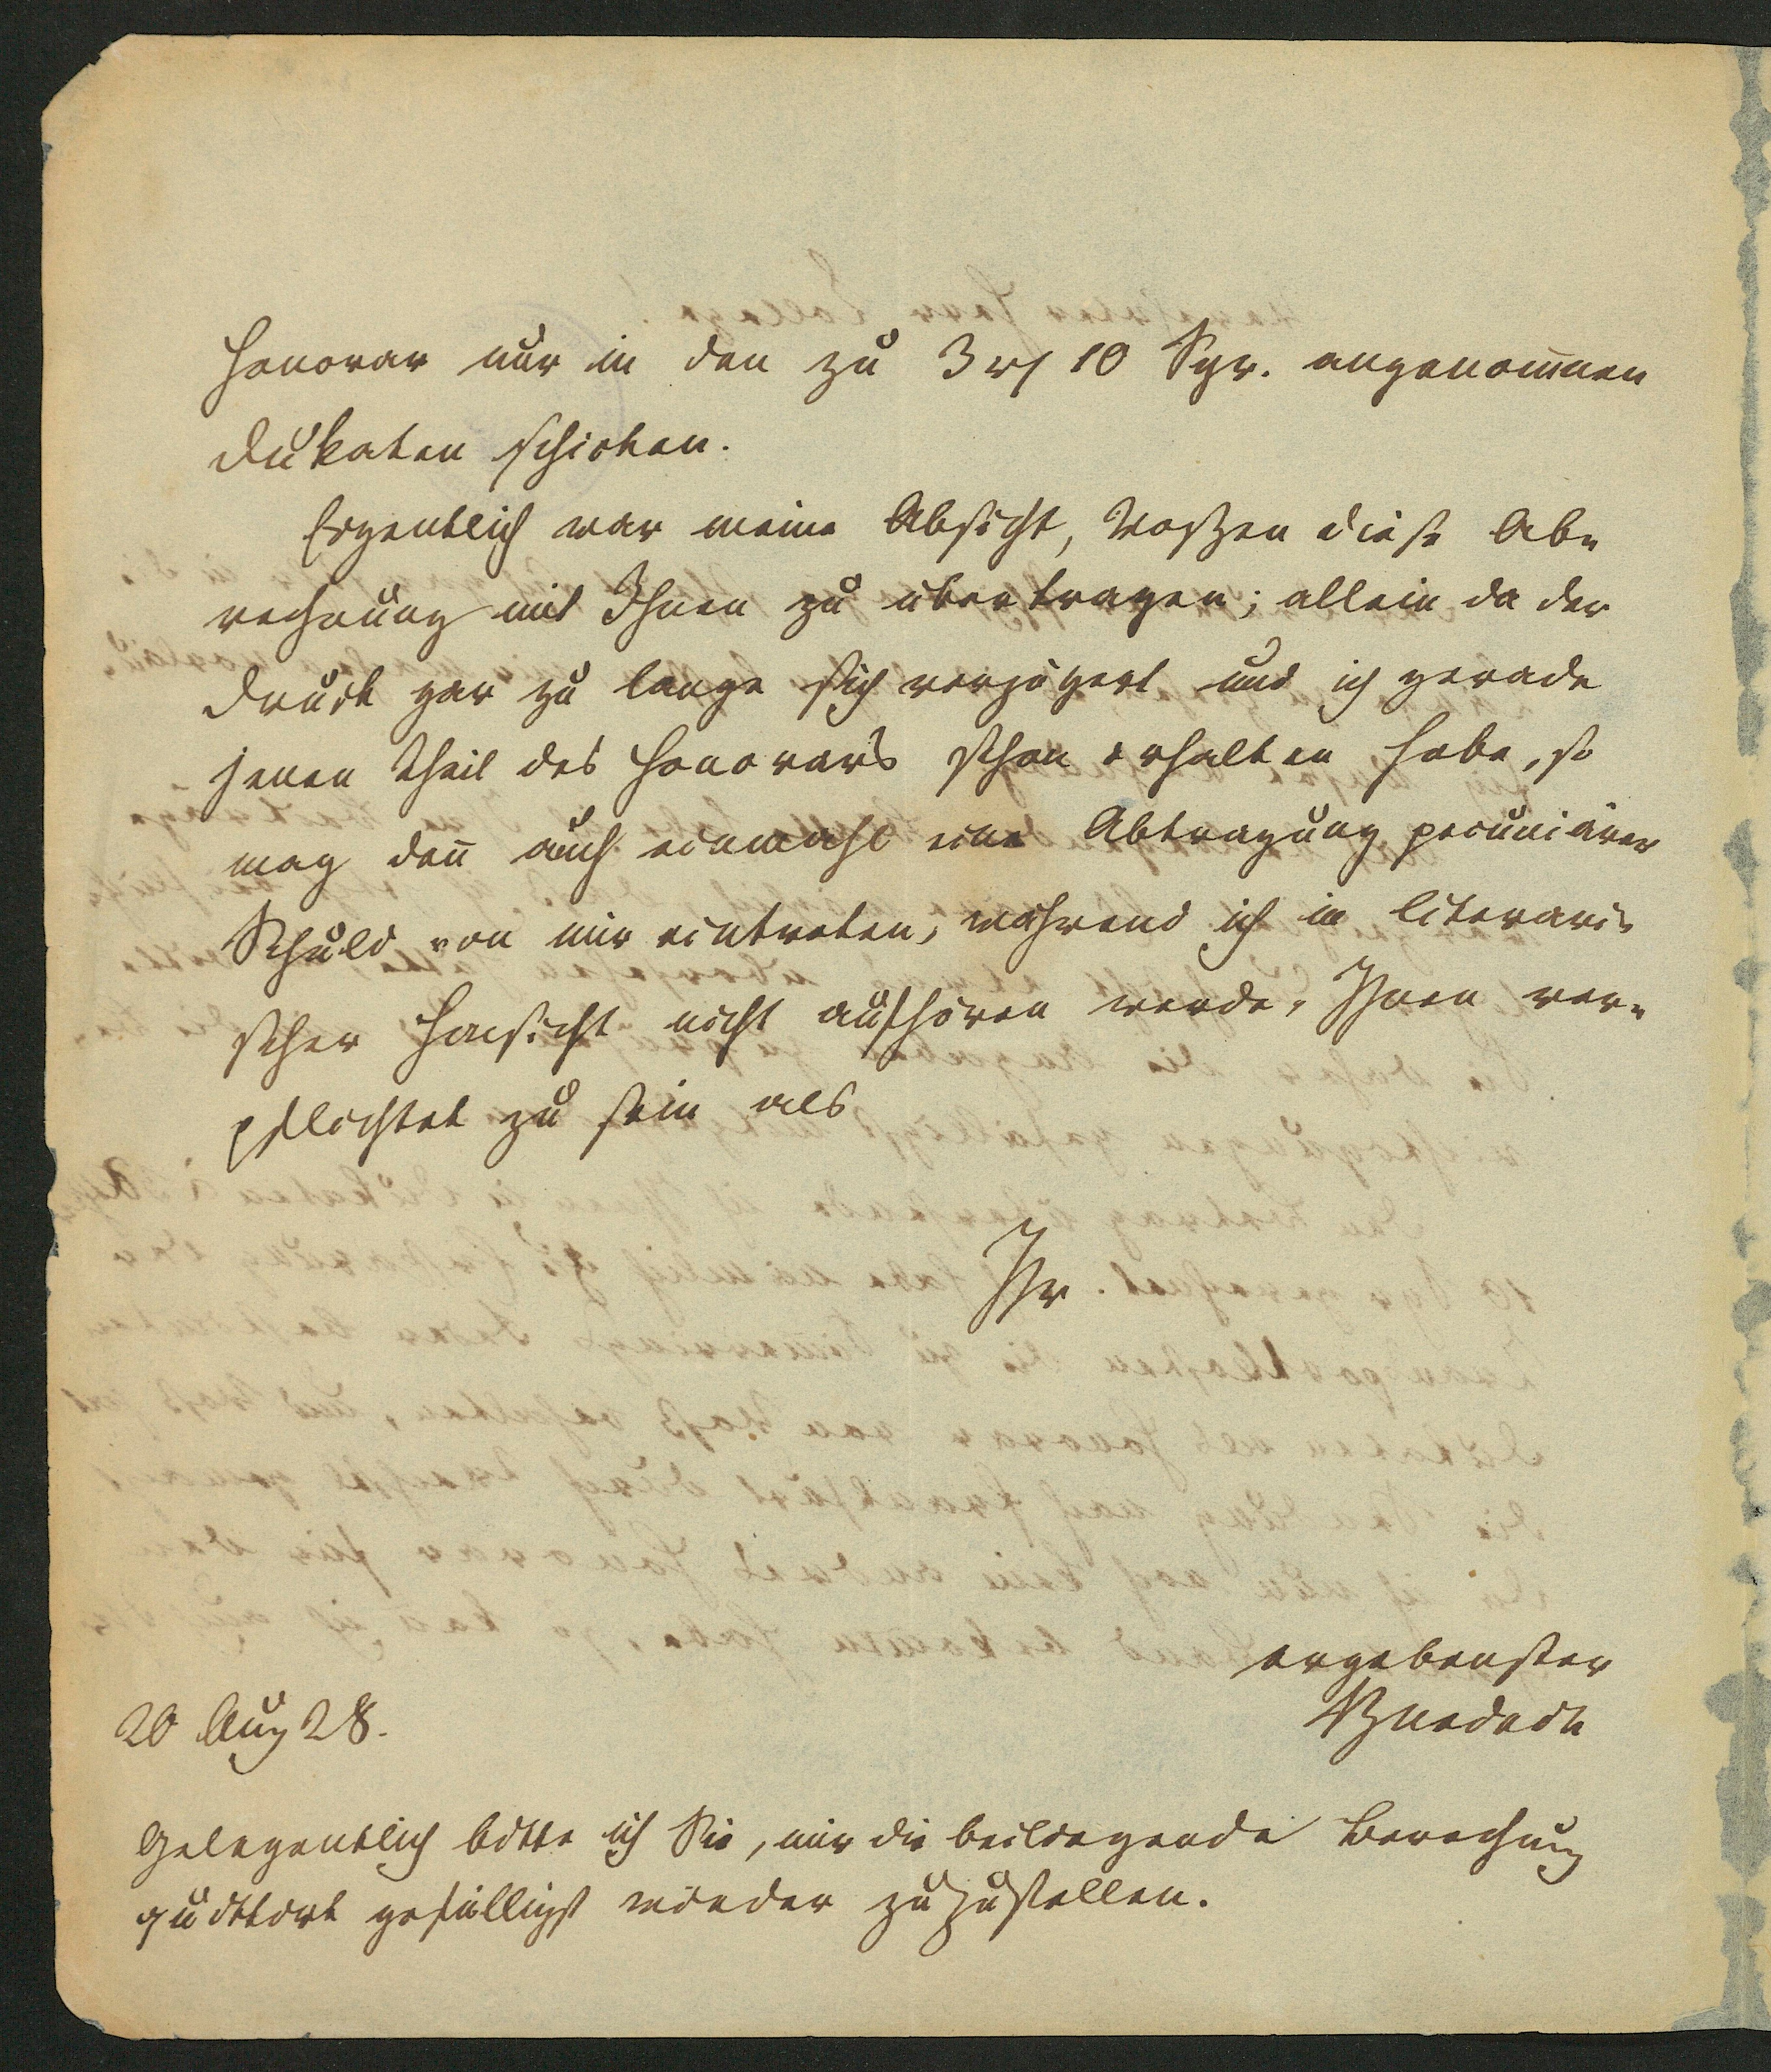 Honorar nur in den zu 3 rℓ 10 Sgr. angenom̄nen
Dukaten schicken.
Eigentlich war meine Absicht, Vossen diese Ab-
rechnung mit Ihnen zu übertragen; allein da der
Druck gar zu lange sich verzögert und ich gerade
jenen Theil des Honorar's schon erhalten habe, so
mag den̄ auch einmahl eine Abtragung pecuniärer
Schuld von mir eintreten, während ich in literari-
scher Hinsicht nicht aufhören werde, Ihnen ver-
pflichtet zu sein als
Ihr
ergebenster
Burdach
20 Aug 28.
Gelegentlich bitte ich Sie, mir die beiliegende Berechnung
quittirt gefälligst wieder zuzustellen.